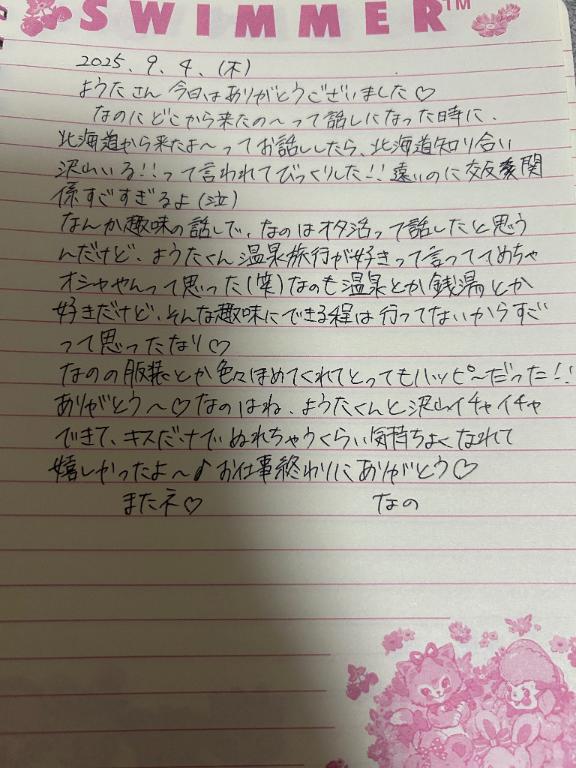 SWIMMER™
2025. 9. 4. (木)
ようたさん今日はありがとうございました♡
なのにどこから来たの〜って話しになった時に、
北海道から来たよ〜ってお話ししたら、北海道知り合い
沢山いる!!って言われてびっくりした!!遠いのに交友関
係すごすぎるよ(泣)
なんか趣味の話しで、なのはオタ活って話したと思う
んだけど、ようたくん温泉旅行が好きって言っててめちゃ
オシャやんって思った(笑)なのも温泉とか銭湯とか
好きだけど、そんな趣味にできる程は行ってないからすご
って思ったなり♡
なのの服装とか色々ほめてくれてとってもハッピ〜だった!!
ありがとう〜♡なのはね、ようたくんと沢山イチャイチャ
できて、キスだけでぬれちゃうくらい気持ちよくなれて
嬉しかったよ〜♪お仕事終わりにありがとう♡
またネ♡ なの